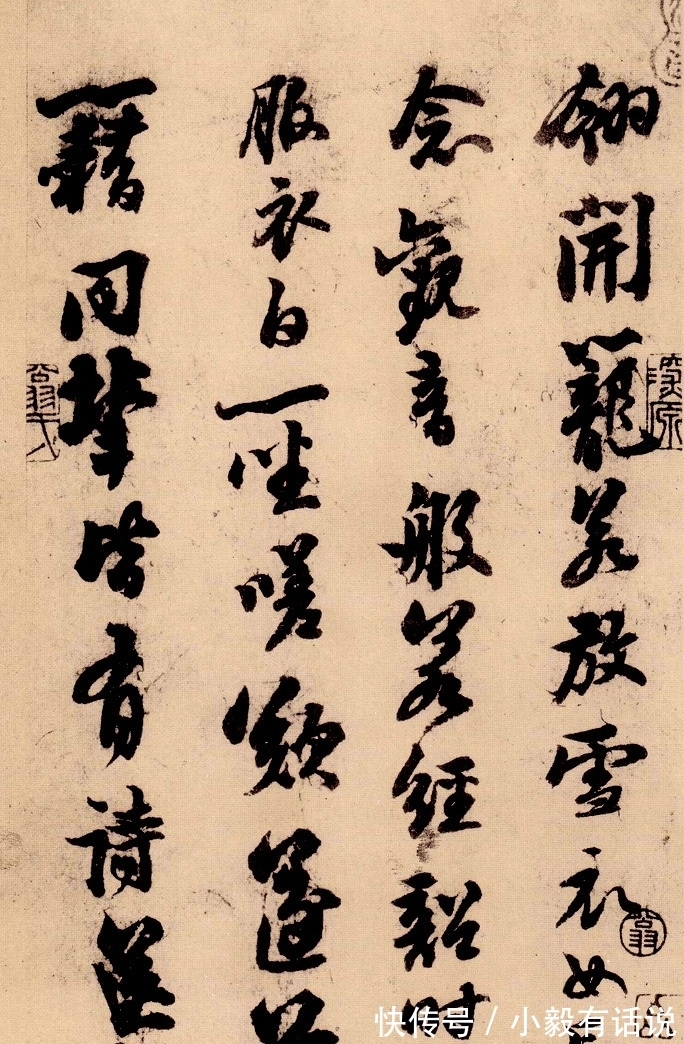 翎開籠若放雪衣女
念觀音般若經韶時
服衣白一坐嗟歎遂落
籍同輩皆有詩送
快传号 / 小毅有话说